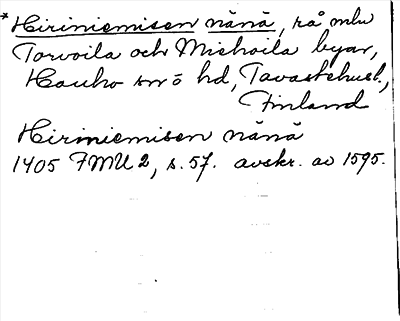 * Hiriniemisen nänä, rå mlm
Torvoila och Miehoila byar,
Hauho sn ö hd, Tavastehusl.,
Finland
Hiriniemisen nänä
1405 FMU 2, s. 57. avskr. av 1595.